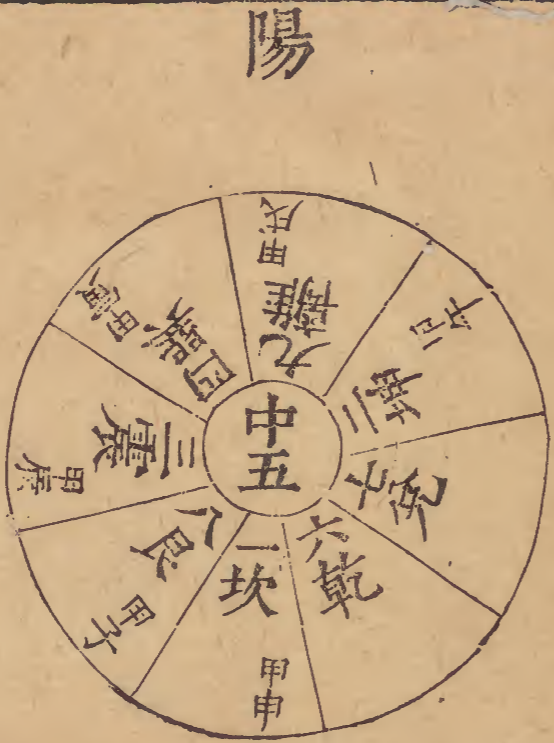 陽
甲戌
九離
甲午
二坤
七兌
六乾
一坎
甲申
八艮
甲子
三震
甲辰
四巽
甲寅
中五